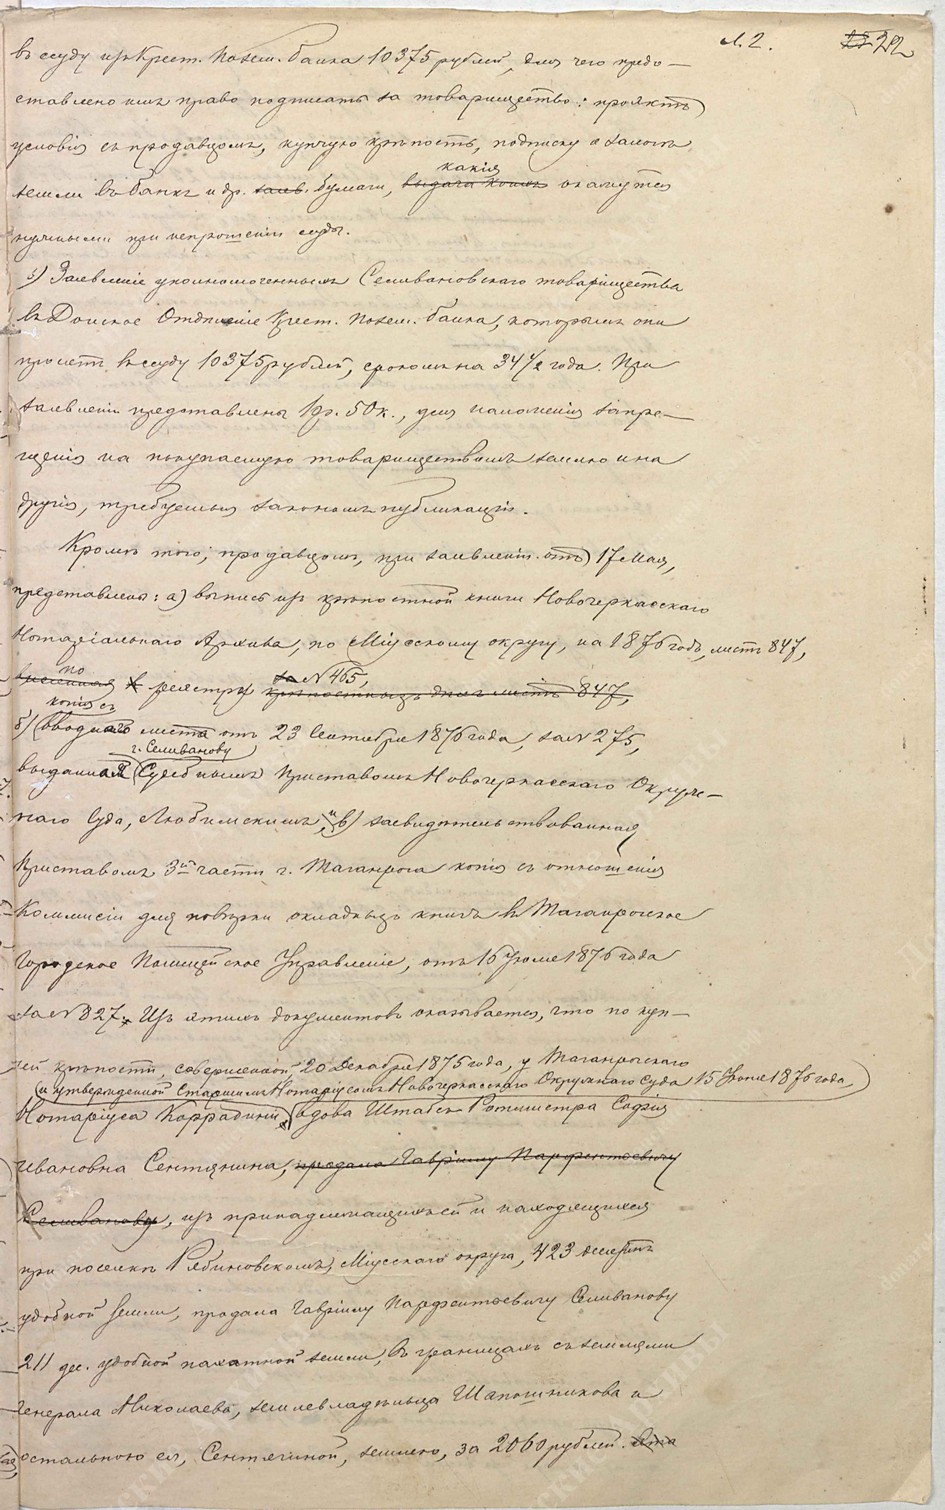 л. 2. 22
въ ссуду изъ Крест. Позем. банка 10375 рублей, для чего предо-
ставлено имъ право подписать за товарищество: проэктъ
условія съ продавцомъ, купчую крѣпость, подписку о залогѣ
какія
земли въ банкѣ и др. бумаги, выдача коихъ окажутся
нужными при испрошеніи ссуды.
3) Заявленіе уполномоченныхъ Селивановскаго товарищества
въ Донское Отдѣленіе Крест. Позем. банка, которымъ они
просятъ въ ссуду 10375 рублей, срокомъ на 34 1/2 года. При
заявленіи представлены 1 р. 50 к., для наложенія запре-
щенія на покупаемую товариществомъ землю и на
другія, требуемыя закономъ публикаціи.
Кромѣ того, продавцомъ, при заявленіи отъ 17 Мая,
представлены: а) выпись изъ крѣпостной книги Новочеркасскаго
Нотаріальнаго Архива, по Міусскому округу, на 1876 годъ, листъ 847,
по за № 465,
реестру крѣпостныхъ дѣлъ листъ 847,
копія съ
б) вводнаго листа отъ 23 Сентября 1876 года, за № 275,
г. Селиванову
выданная Судебнымъ Приставомъ Новочеркасскаго Окруж-
наго Суда, Любимскимъ, и в) засвидѣтельствованная
Приставомъ 3й части г. Таганрога копія съ отношенія
Коммисіи для повѣрки окладныхъ книгъ въ Таганрогское
Городское Полицейское Управленіе, отъ 16 Іюля 1876 года
за № 827. Изъ этихъ документовъ оказывается, что по куп-
чей крѣпости, совершенной 20 Декабря 1875 года, у Таганрогскаго
и утвержденной Старшимъ Нотаріусомъ Новочеркасскаго Окружнаго Суда 15 Іюля 1876 года,
Нотаріуса Каррадини, вдова Штабсъ Ротмистра Софія
Ивановна Сентянина, продала Гавріилу Парфентьевичу
Селиванову, изъ принадлежащихъ ей и находящихся
при поселкѣ Рябиновскомъ, Міусскаго округа, 423 десятинъ
удобной земли, продала Гавріилу Парфентьевичу Селиванову
211 дес. удобной пахатной земли, въ границахъ съ землями
Генерала Николаева, землевладѣльца Шапошникова и
остальною ея, Сентяниной, землею, за 2060 рублей. Эта